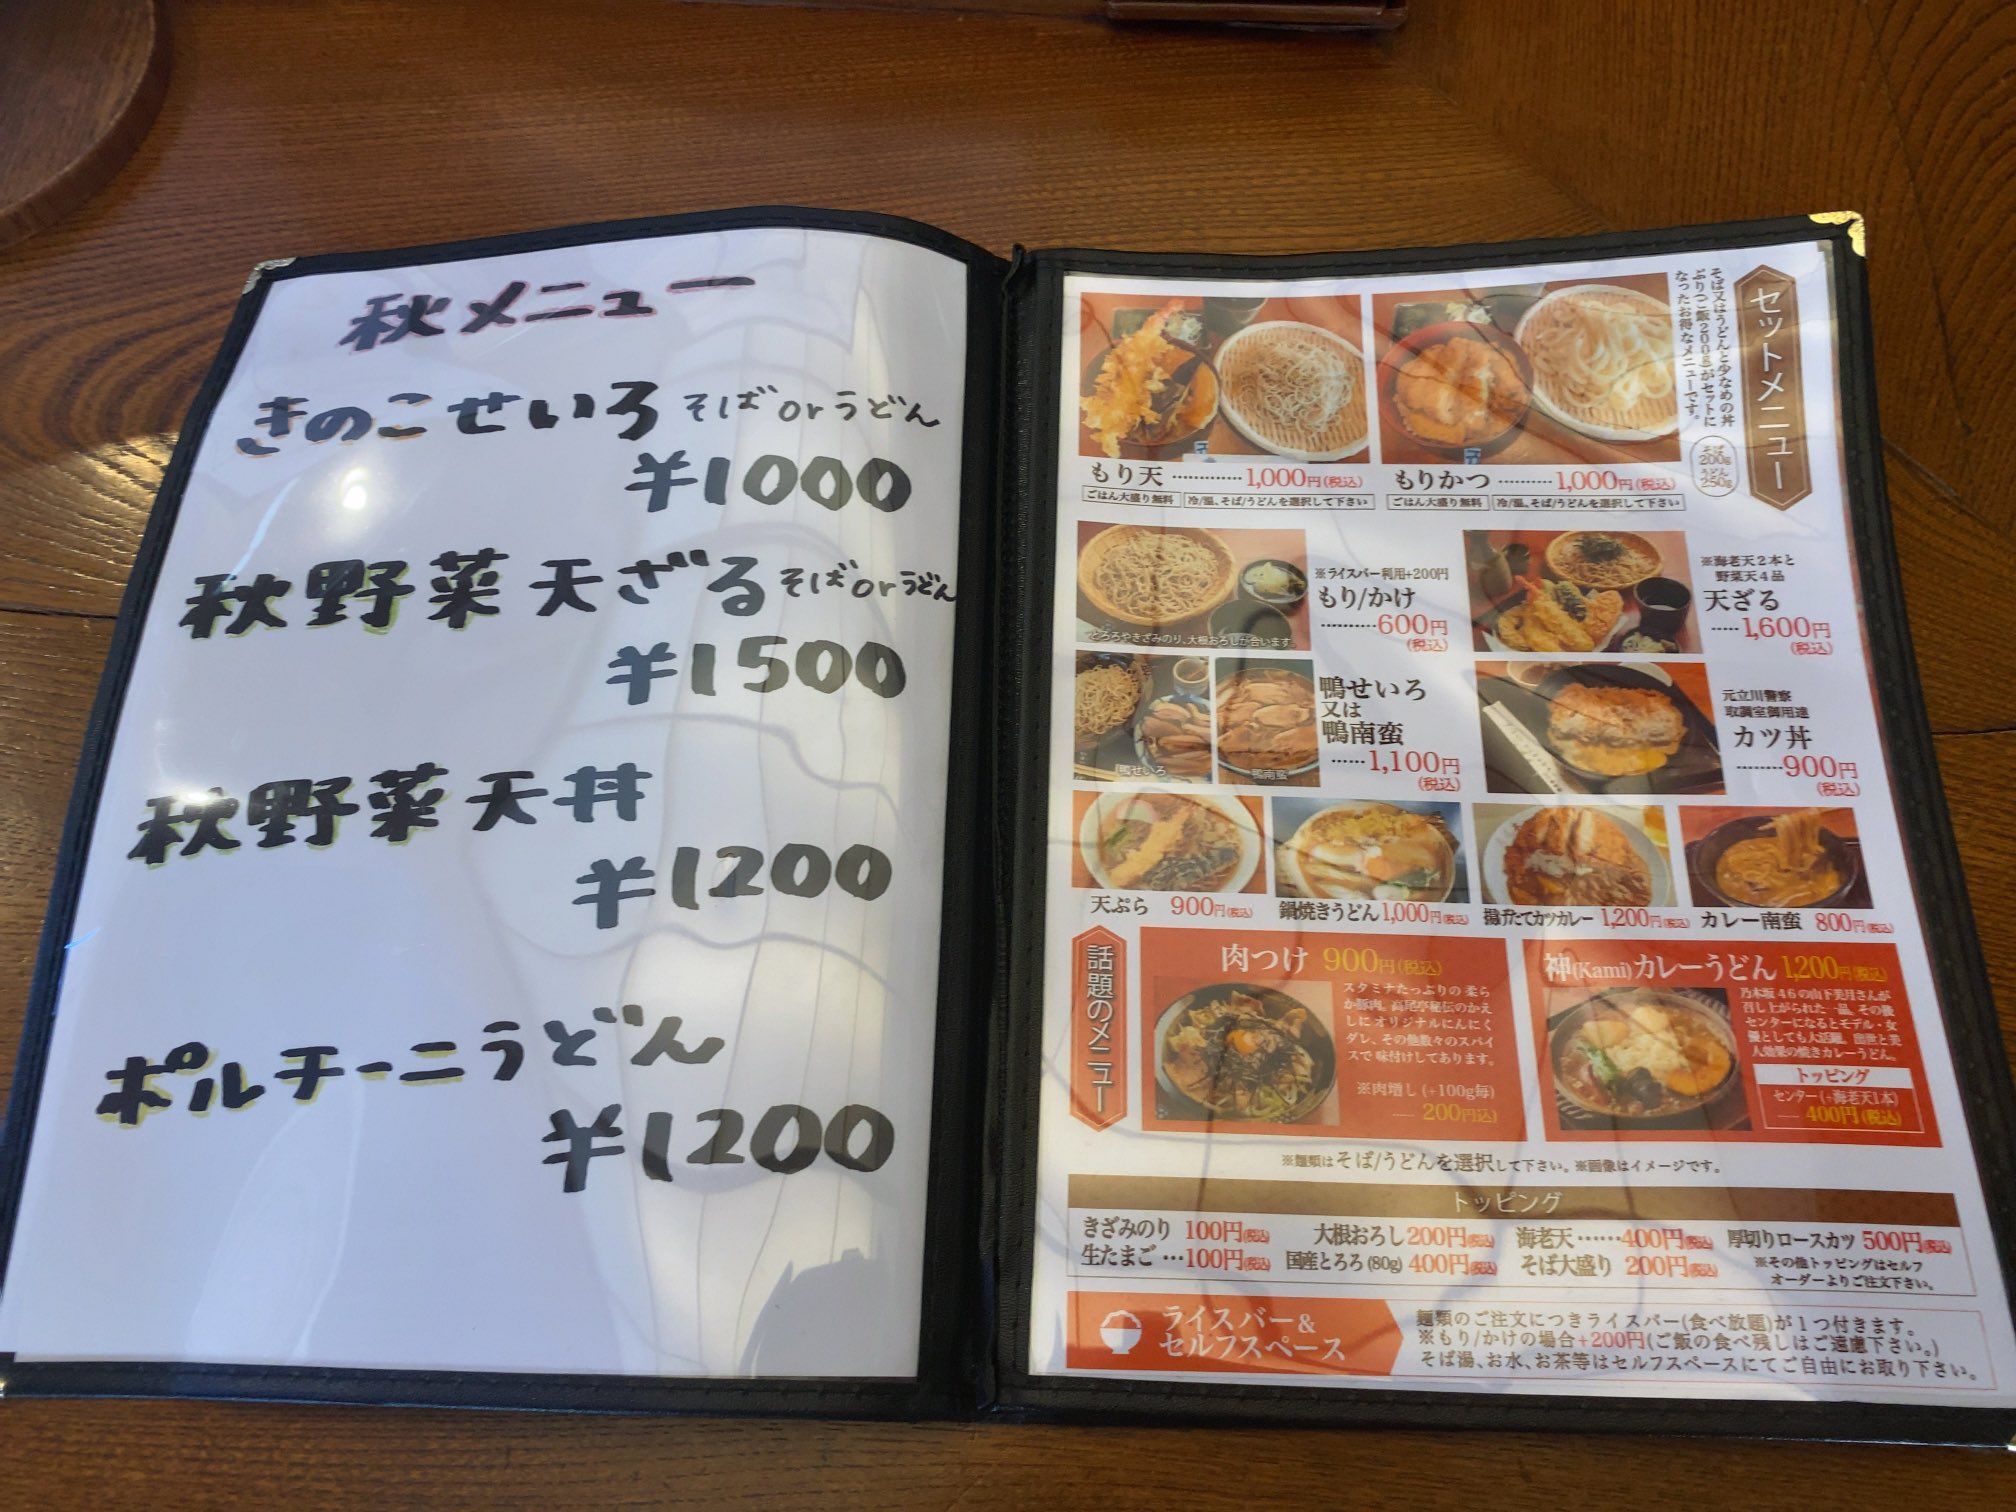 秋メニュー
きのこせいろ そば or うどん
¥1000
秋野菜天ざる そば or うどん
¥1500
秋野菜天丼
¥1200
ポルチーニうどん
¥1200
セットメニュー
そば又はうどんと少なめの丼
ぶり(ご飯200g)がセットに
なったお得なメニューです。
そば
200g
うどん
250g
もり天 ············· 1,000円(税込)
ごはん大盛り無料 冷/温、そば/うどんを選択して下さい
もりかつ ·········· 1,000円(税込)
ごはん大盛り無料 冷/温、そば/うどんを選択して下さい
とろろやきざみのり、大根おろしが合います。
※ライスバー利用+200円
もり/かけ
··········600円
(税込)
※海老天2本と
野菜天4品
天ざる
·····1,600円
(税込)
鴨せいろ
鴨南蛮
鴨せいろ
又は
鴨南蛮
······1,100円
(税込)
元立川警察
取調室御用達
カツ丼
········900円
(税込)
天ぷら 900円(税込)
鍋焼きうどん1,000円(税込)
揚げたてカツカレー 1,200円(税込)
カレー南蛮 800円(税込)
話題のメニュー
肉つけ 900円(税込)
スタミナたっぷりの 柔ら
か豚肉。高尾亭秘伝のかえ
しにオリジナルにんにく
ダレ、その他数々のスパイ
スで 味付けしてあります。
※肉増し (+100g毎)
····· 200円込)
神(Kami)カレーうどん 1,200円(税込)
乃木坂46の山下美月さんが
召し上がられた一品、その後
センターになるとモデル・女
優としても大活躍。出世と美
人効果の焼きカレーうどん。
トッピング
センター(+海老天1本)
····· 400円(税込)
※麺類はそば/うどんを選択して下さい。※画像はイメージです。
トッピング
きざみのり 100円(税込) 大根おろし200円(税込) 海老天······400円(税込) 厚切りロースカツ 500円(税込)
生たまご ···100円(税込) 国産とろろ(80g) 400円(税込) そば大盛り 200円(税込) ※その他トッピングはセルフ
オーダーよりご注文下さい。
ライスバー&
セルフスペース
麺類のご注文につきライスバー(食べ放題)が1つ付きます。
※もり/かけの場合+200円(ご飯の食べ残しはご遠慮下さい。)
そば湯、お水、お茶等はセルフスペースにてご自由にお取り下さい。